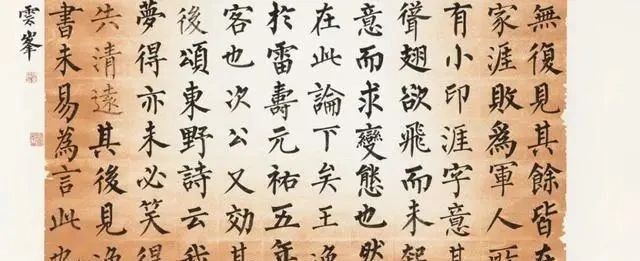 無復見其餘皆在
家涯敗爲軍人所
有小印涯字意其
聳翅欲飛而未起
意而求變態也然
在此論下矣王
於雷壽元祐五年
客也次公又效其
後頌東野詩云我
夢得亦未必笑得
共清遠其後見
書未易為言此也
雲峯